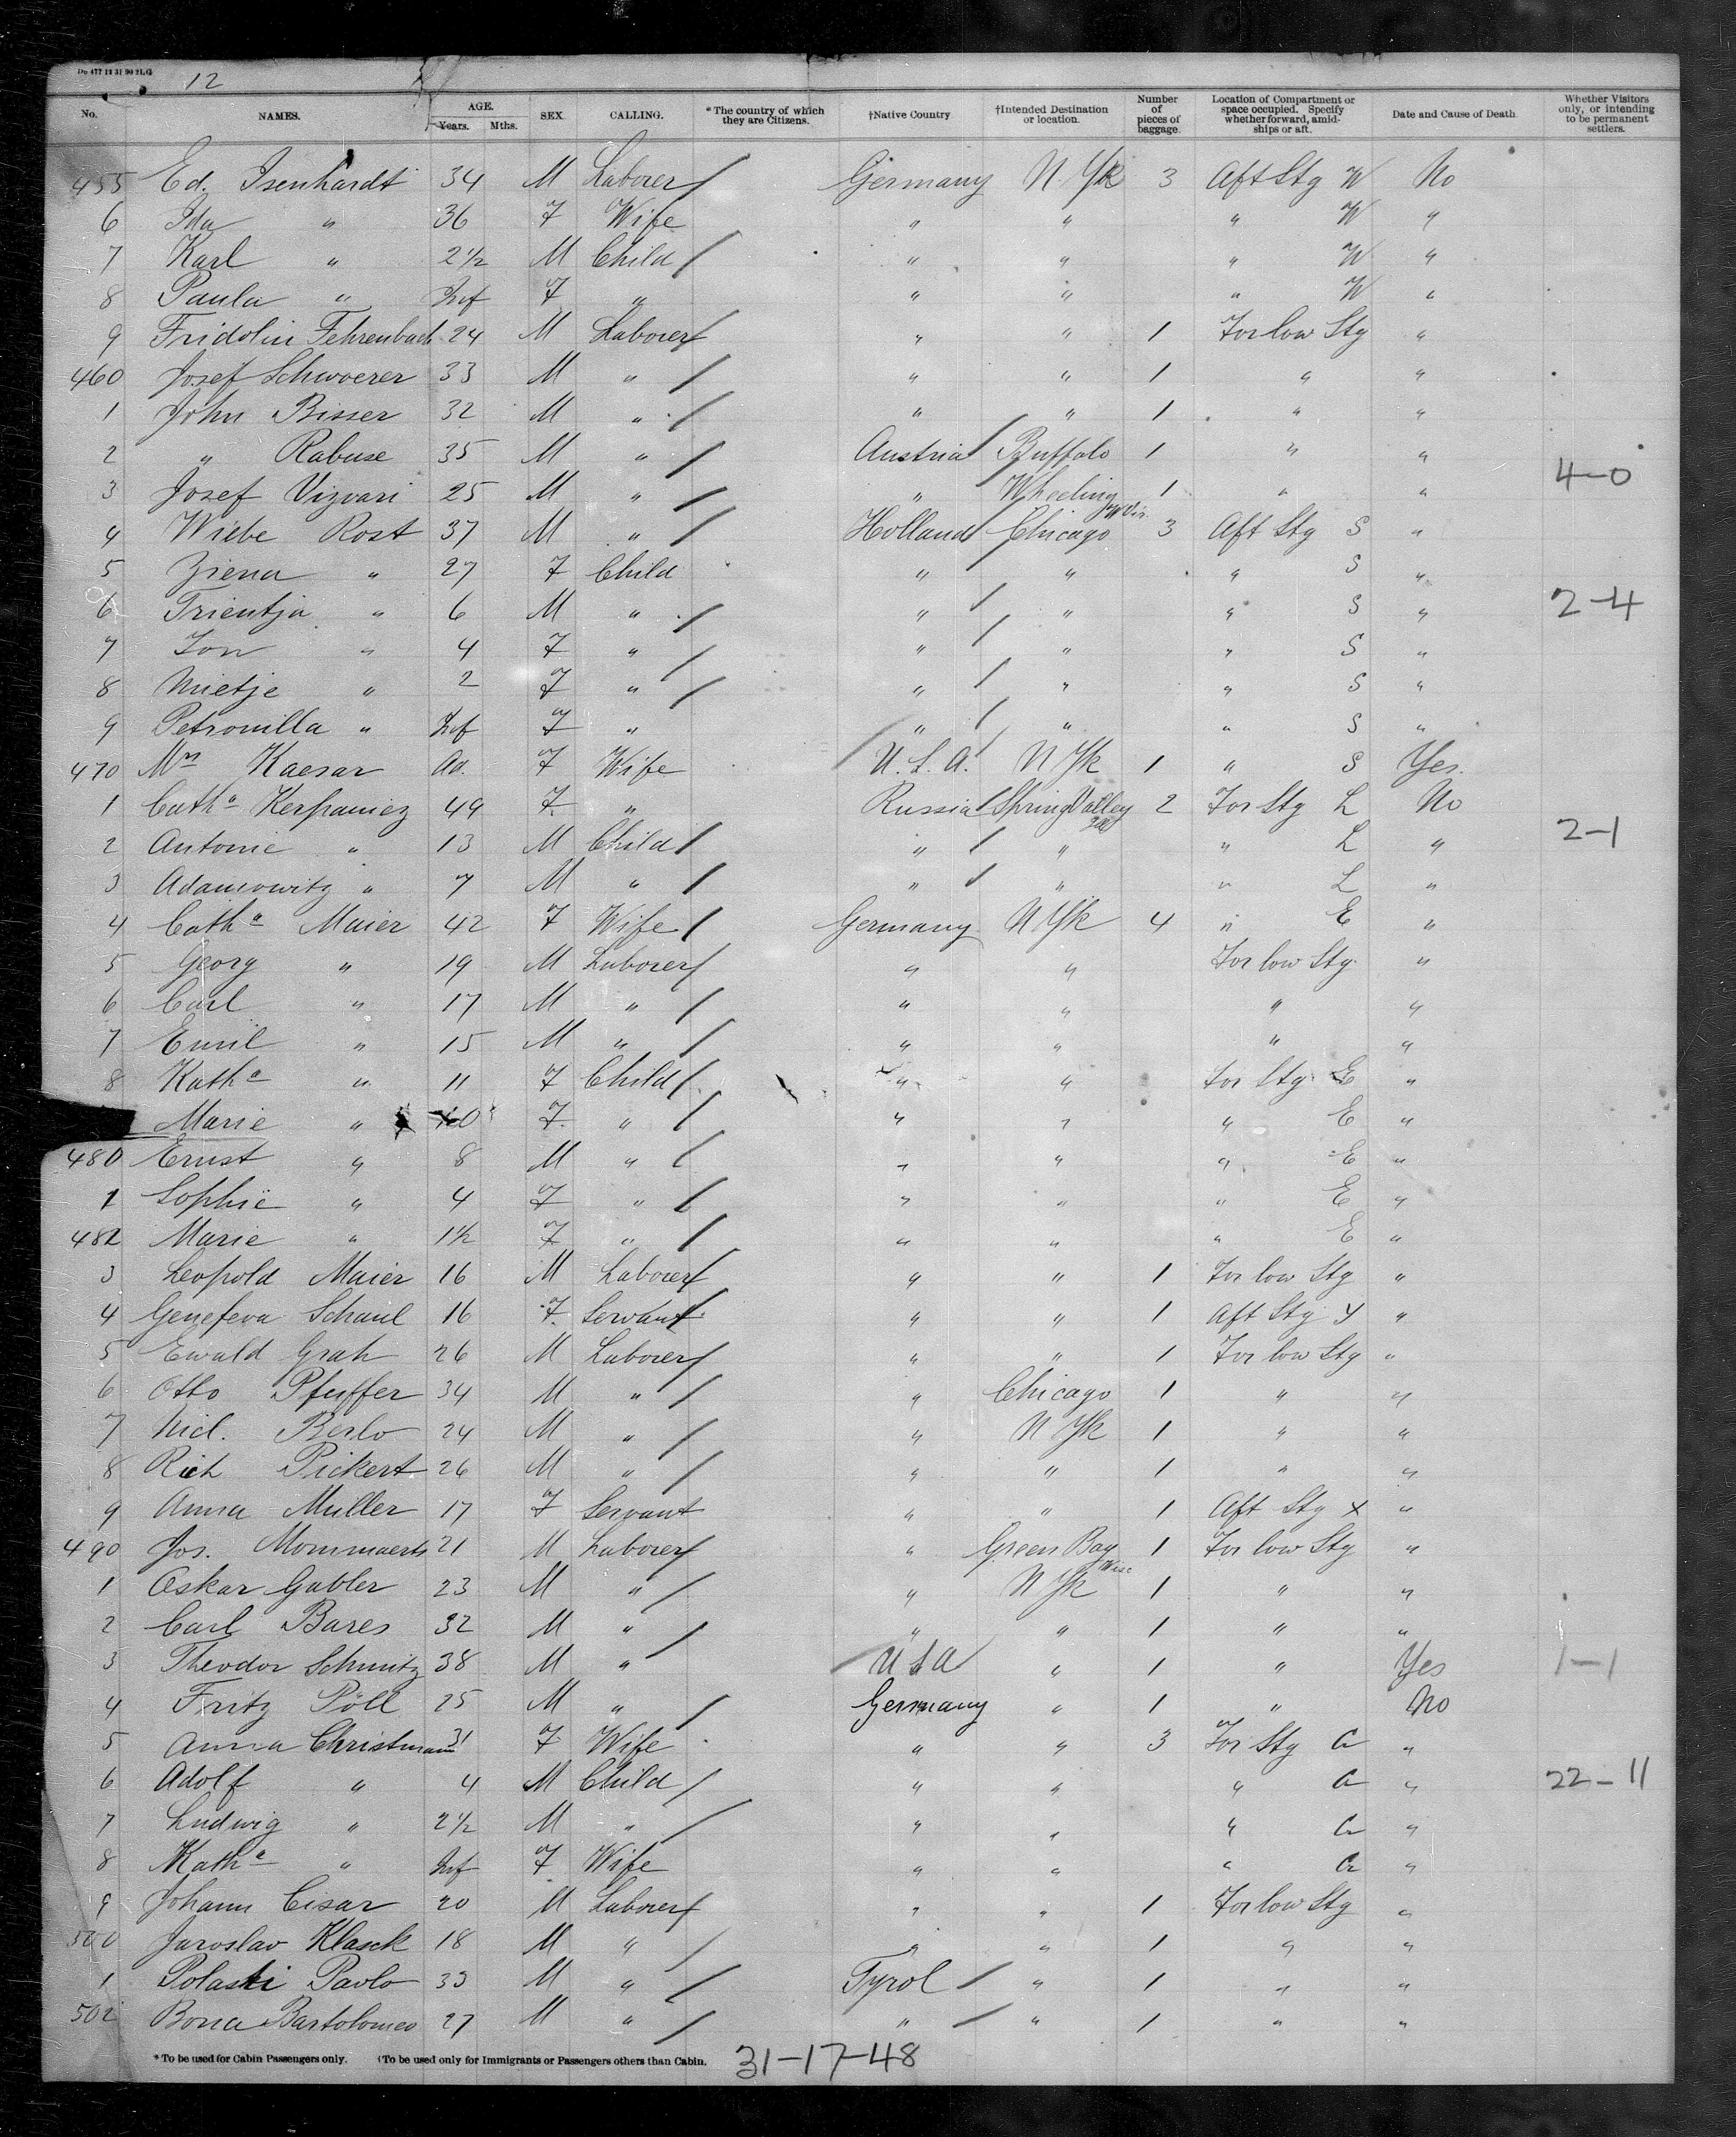 Do 477 12 31 90 2LG
12
No. NAMES. AGE. Years. Mths. SEX. CALLING. *The country of which they are Citizens. †Native Country †Intended Destination or location. Number of pieces of baggage. Location of Compartment or space occupied. Specify whether forward, amidships or aft. Date and Cause of Death. Whether Visitors only, or intending to be permanent settlers.
455 Ed. Isenhardt 34 M Laborer / Germany N Yk 3 Aft Stg W No
6 Ida " 36 F Wife " " " W "
7 Karl " 2½ M Child / " " " W "
8 Paula " Inf F " " " " W "
9 Fridolin Fehrenbach 24 M Laborer / " " 1 For low Stg "
460 Josef Schwoerer 33 M " / " " 1 " "
1 John Bisser 32 M " / " " 1 " "
2 " Rabuse 35 M " / Austria / Buffalo 1 " "
3 Josef Vizvari 25 M " / " Wheeling W Vir. 1 " " 4-0
4 Wiebe Rost 37 M " / Holland / Chicago 3 Aft Stg S "
5 Ziena " 27 F Child " " " S "
6 Trientja " 6 M " / " / " " S " 2-4
7 Jon " 4 F " / " / " " S "
8 Mietje " 2 F " / " / " " S "
9 Petronilla " Inf F " " / " " S "
470 Mrs Kaesar Ad. F Wife / U.S.A. / N Yk 1 " S Yes.
1 Catha Kerpaniez 49 F " Russia / Spring Valley Ill 2 For Stg L No
2 Antonie " 13 M Child / " / " " L " 2-1
3 Adamowitz " 7 M " / " / " " L "
4 Catha Maier 42 F Wife / Germany N Yk 4 " E "
5 Georg " 19 M Laborer / " " For low Stg "
6 Carl " 17 M " / " " " "
7 Emil " 15 M " / " " " "
8 Katha " 11 F Child / " " For Stg E "
Marie " 10 F " / " " " E "
480 Ernst " 8 M " / " " " E "
1 Sophie " 4 F " / " " " E "
482 Marie " 1½ F " / " " " E "
3 Leopold Maier 16 M Laborer / " " 1 For low Stg "
4 Genefeva Schaul 16 F Servant / " " 1 Aft Stg Y "
5 Ewald Grah 26 M Laborer / " " 1 For low Stg "
6 Otto Pfuffer 34 M " / " Chicago 1 " "
7 Nicl. Berlo 24 M " / " N Yk 1 " "
8 Rich Pickert 26 M " / " " 1 " "
9 Anna Muller 17 F Servant " " 1 Aft Stg X "
490 Jos. Mommaerts 21 M Laborer / " Green Bay Wisc 1 For low Stg "
1 Oskar Gabler 23 M " / " N Yk 1 " "
2 Carl Bares 32 M " / " " 1 " "
3 Theodor Schmitz 38 M " / U S A / " 1 " Yes 1-1
4 Fritz Pöll 25 M " / Germany " 1 " No
5 Anna Christmann 31 F Wife " " 3 For Stg G "
6 Adolf " 4 M Child / " " " G " 22-11
7 Ludwig " 2½ M " / " " " G "
8 Katha " Inf F Wife " " " G "
9 Johann Cisar 20 M Laborer / " " 1 For low Stg "
500 Jaroslav Klasek 18 M " / " " 1 " "
1 Polaski Pavlo 33 M " / Tyrol / " 1 " "
502 Bona Bartolomeo 27 M " / " / " 1 " "
*To be used for Cabin Passengers only. †To be used only for Immigrants or Passengers others than Cabin. 31-17-48